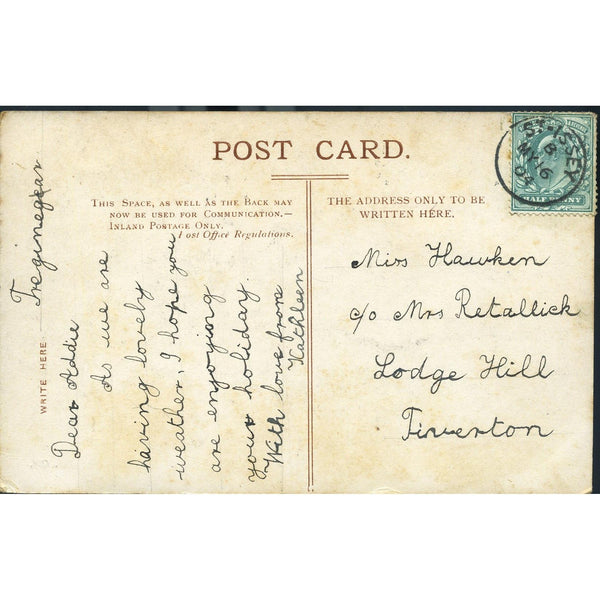 POST CARD.
THIS SPACE, AS WELL AS THE BACK MAY
NOW BE USED FOR COMMUNICATION.—
INLAND POSTAGE ONLY.
Post Office Regulations.
THE ADDRESS ONLY TO BE
WRITTEN HERE.
WRITE HERE
Treginegar
Dear Addie
As we are
having lovely
weather, I hope you
are enjoying
your holiday.
With love from
Kathleen
Miss Hawken
c/o Mrs Retallick
Lodge Hill
Tiverton
ST. ISSEY
MY 6
HALFPENNY